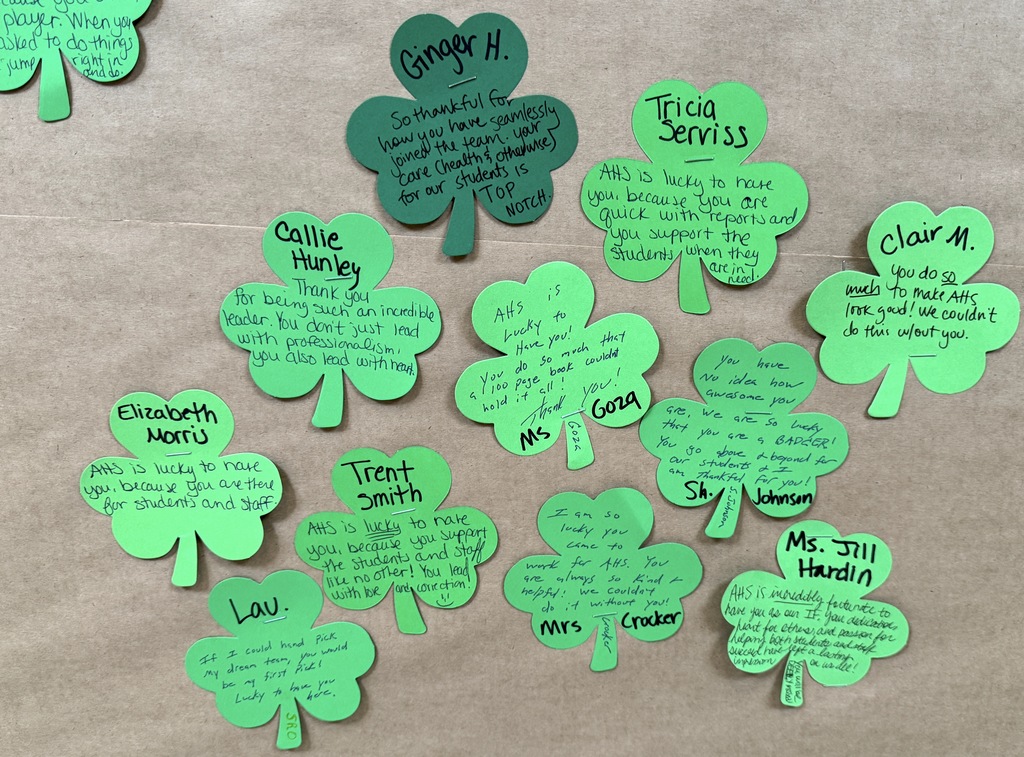 player. When you
asked to do things
jump right in
and do.
Ginger H.
So thankful for
how you have seamlessly
joined the team. Your
care (health & otherwise)
for our students is
TOP
NOTCH.
Tricia
Serviss
AHS is lucky to have
you, because you are
quick with reports and
you support the
students when they
are in
need.
Clair M.
You do so
much to make AHS
look good! We couldn't
do this w/out you.
Callie
Hunley
Thank you
for being such an incredible
leader. You don't just lead
with professionalism,
you also lead with heart.
AHS is
Lucky to
Have you!
You do so much that
a 100 page book couldn't
hold it all!
Thank you!
Ms Goza
Goza
You have
No idea how
awesome you
are, we are so lucky
that you are a BADGER!
You go above & beyond for
our students & I
am thankful for you!
Sh. Johnson
S. Johnson
Elizabeth
Morris
AHS is lucky to have
you, because you are there
for students and staff
Trent
Smith
AHS is lucky to have
you, because you support
the students and staff
like no other! You lead
with love and correction!
I am so
lucky you
came to
work for AHS. You
are always so kind &
helpful! We couldn't
do it without you!
Mrs Crocker
Crocker
Ms. Jill
Hardin
AHS is incredibly fortunate to
have you as our IF. Your dedication,
heart for others, and passion for
helping both students and staff
succeed have left a lasting
on us all!
Lau.
If I could hand pick
my dream team, you would
be my first pick!
Lucky to have you
here.
SRO